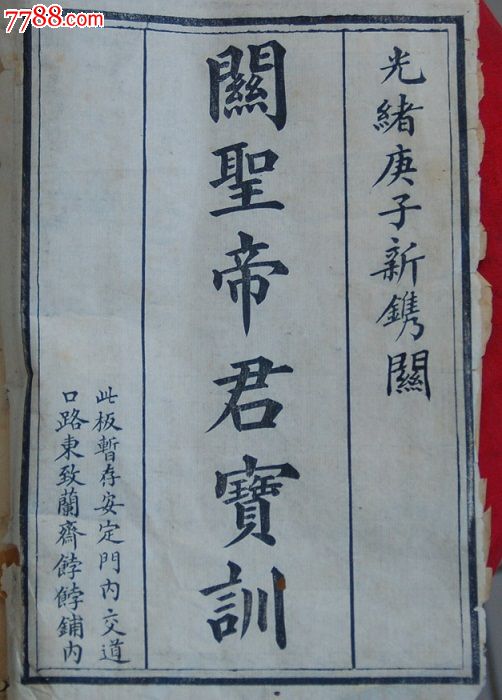 7788.com
光緒庚子新鐫關
關聖帝君寶訓
此板暫存安定門內交道
口路東致蘭齋餑餑鋪內